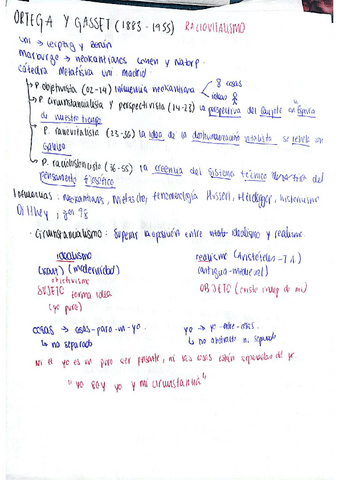 ORTEGA Y GASSET (1883-1955) RACIOVITALISMO
uni → Leipzig y Berlín
marburgo → neokantianos Cohen y Natorp
cátedra metafísica uni madrid
P. objetivista (02-14) influencia neokantiana
cosas
ideas
P. circunstancialista y perspectivista (14-23) la perspectiva del
de nuestro tiempo
P. racovitalista (23-36) la idea de la
P. raciohistoricista (36-55) la creencia del sistema técnico del
pensamiento filosófico
Influencias: neokantianos, Nietzsche, fenomenología Husserl, Heidegger, historicismo
Dilthey, gen 98
· Circunstancialismo: Superar la oposición entre idealismo y realismo.
idealismo
(Kant) (modernidad)
SUJETO forma idea
(yo puro)
realismo (Aristóteles - T.A)
(antigua-medieval)
OBJETO (existe indep de mi)
cosas → cosas-para-un-yo.
↳ no separado
yo → yo-entre-cosas.
↳ no abstracto ni separado
Ni el yo es un puro ser pensante, ni las cosas están separadas del yo.
"yo soy yo y mi circunstancia"